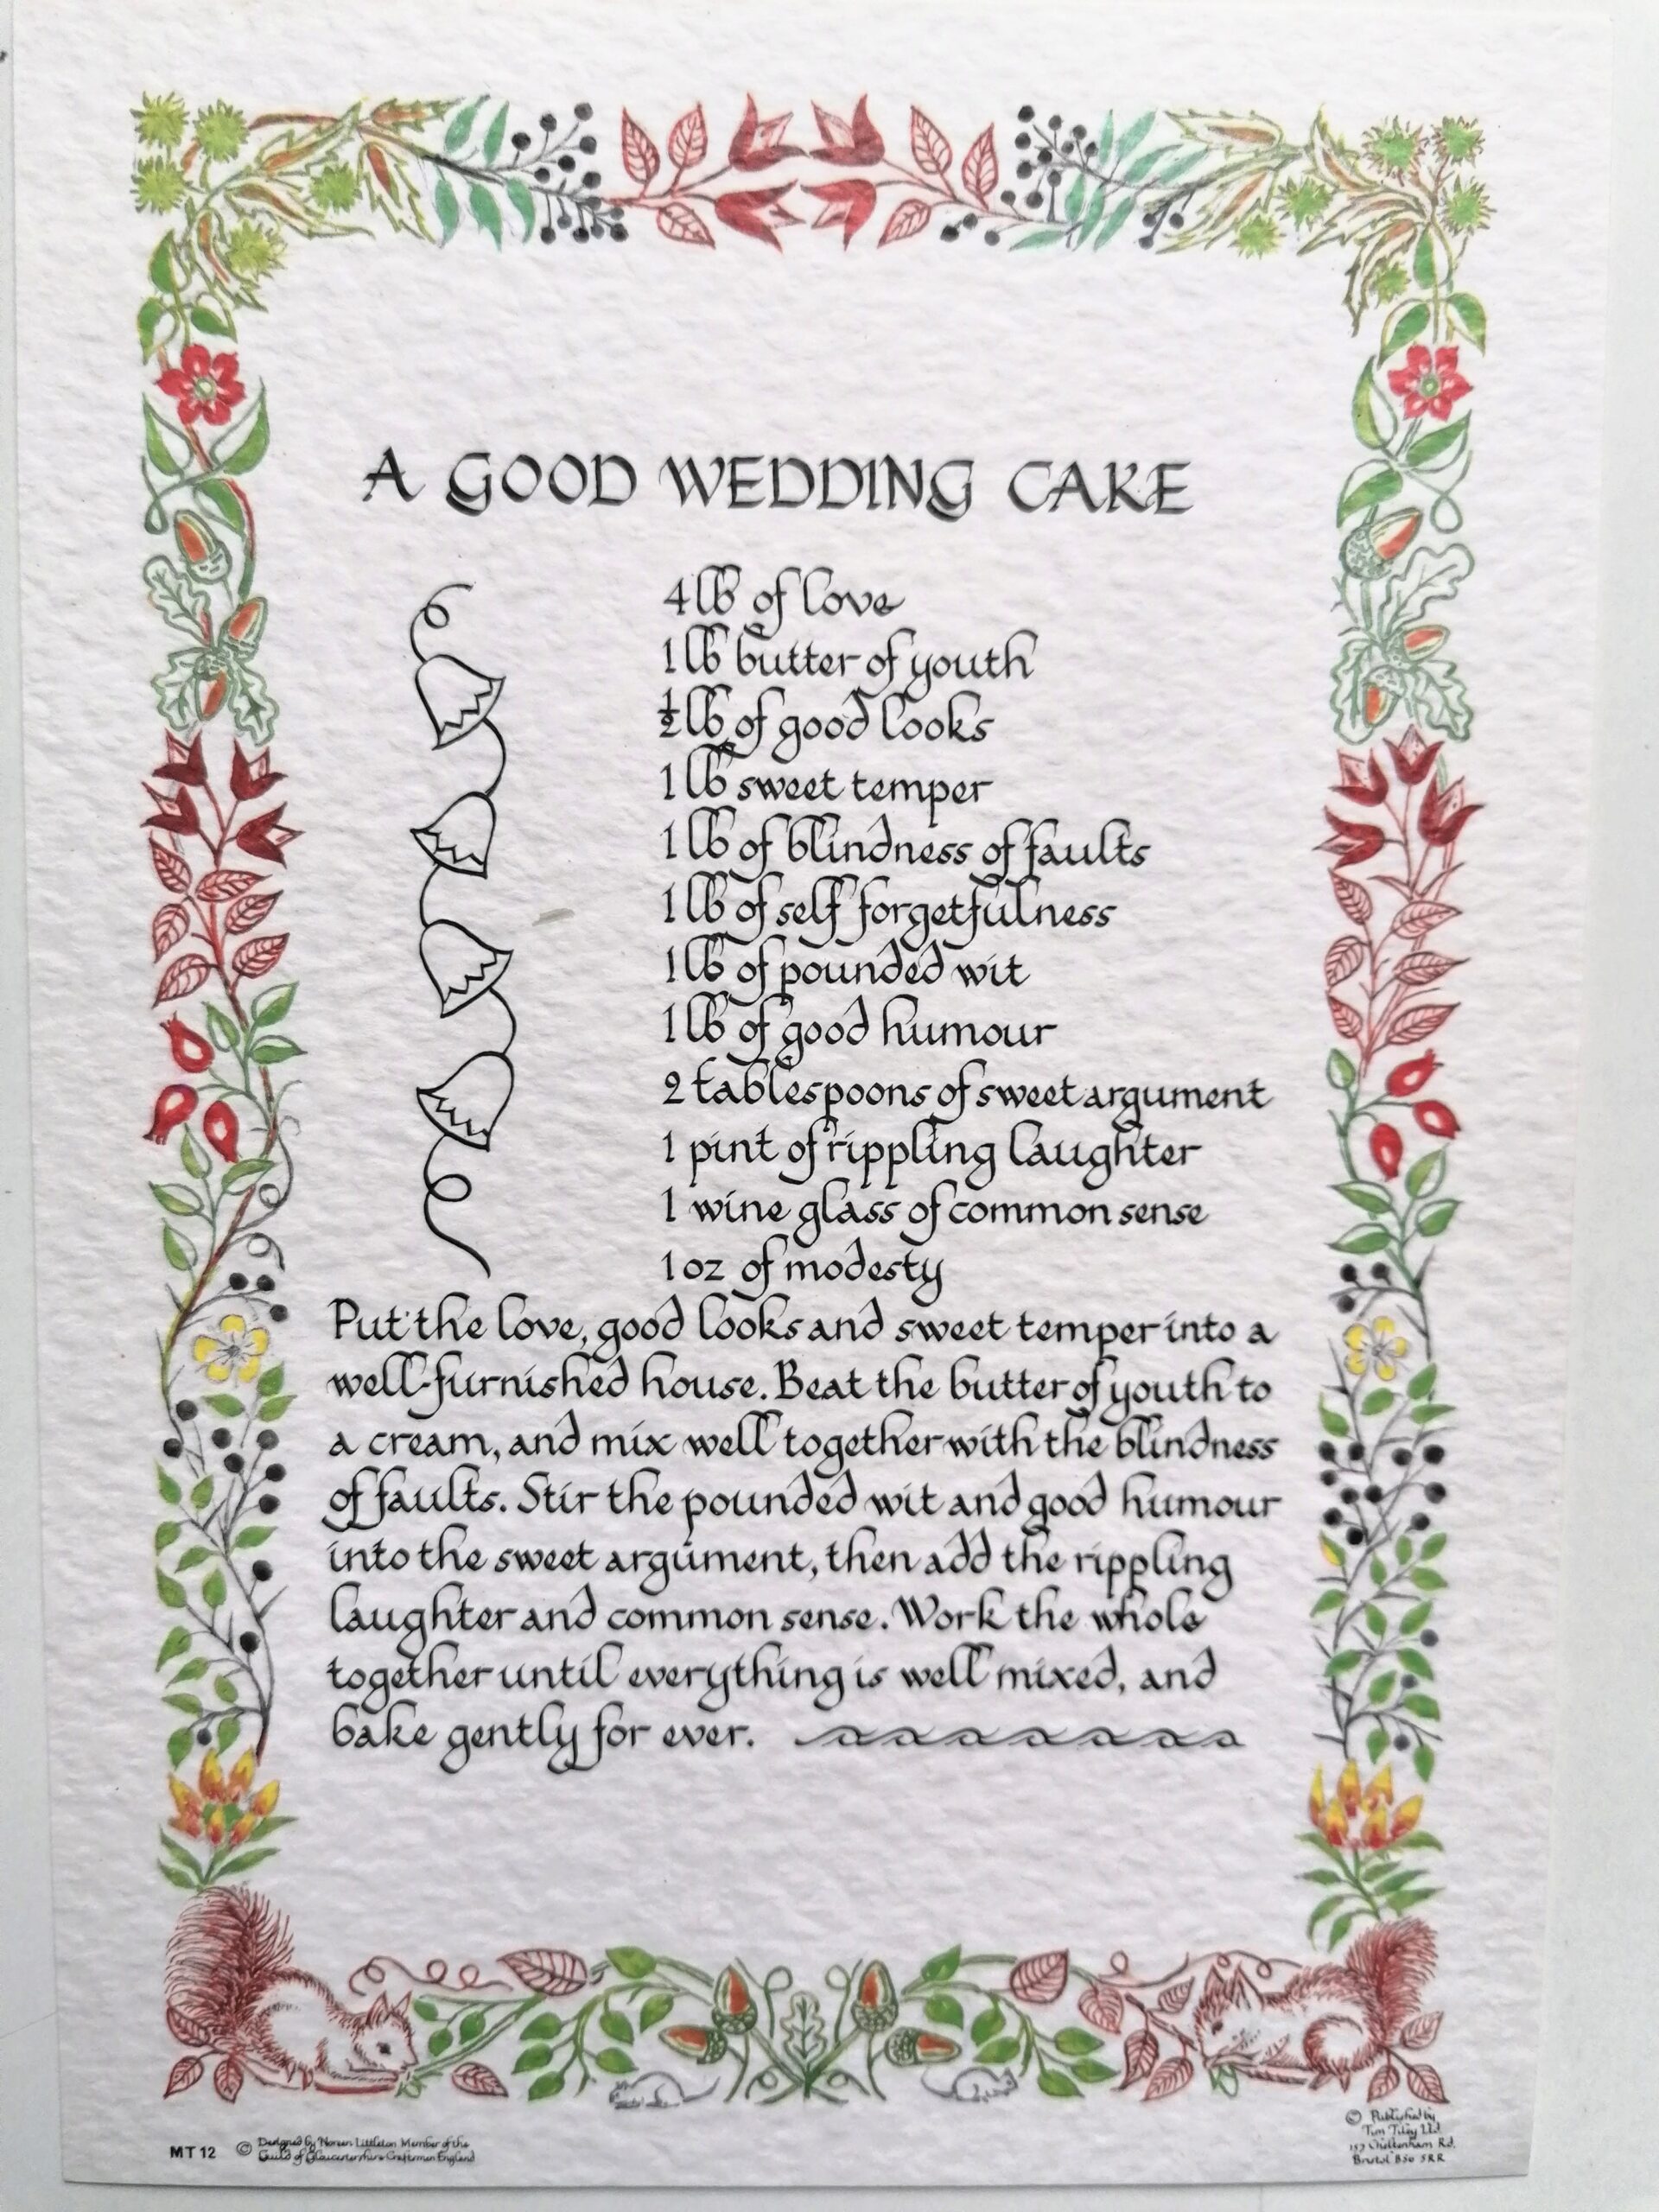 A GOOD WEDDING CAKE
4 lb of love
1 lb butter of youth
½ lb of good looks
1 lb sweet temper
1 lb of blindness of faults
1 lb of self forgetfulness
1 lb of pounded wit
1 lb of good humour
2 tablespoons of sweet argument
1 pint of rippling laughter
1 wine glass of common sense
1 oz of modesty
Put the love, good looks and sweet temper into a
well-furnished house. Beat the butter of youth to
a cream, and mix well together with the blindness
of faults. Stir the pounded wit and good humour
into the sweet argument, then add the rippling
laughter and common sense. Work the whole
together until everything is well mixed, and
bake gently for ever.
MT 12
© Designed by Noreen Littleton Member of the
Guild of Gloucestershire Craftsmen England
© Published by
Tim Tiley Ltd.
157 Cheltenham Rd.
Bristol BS6 5RR